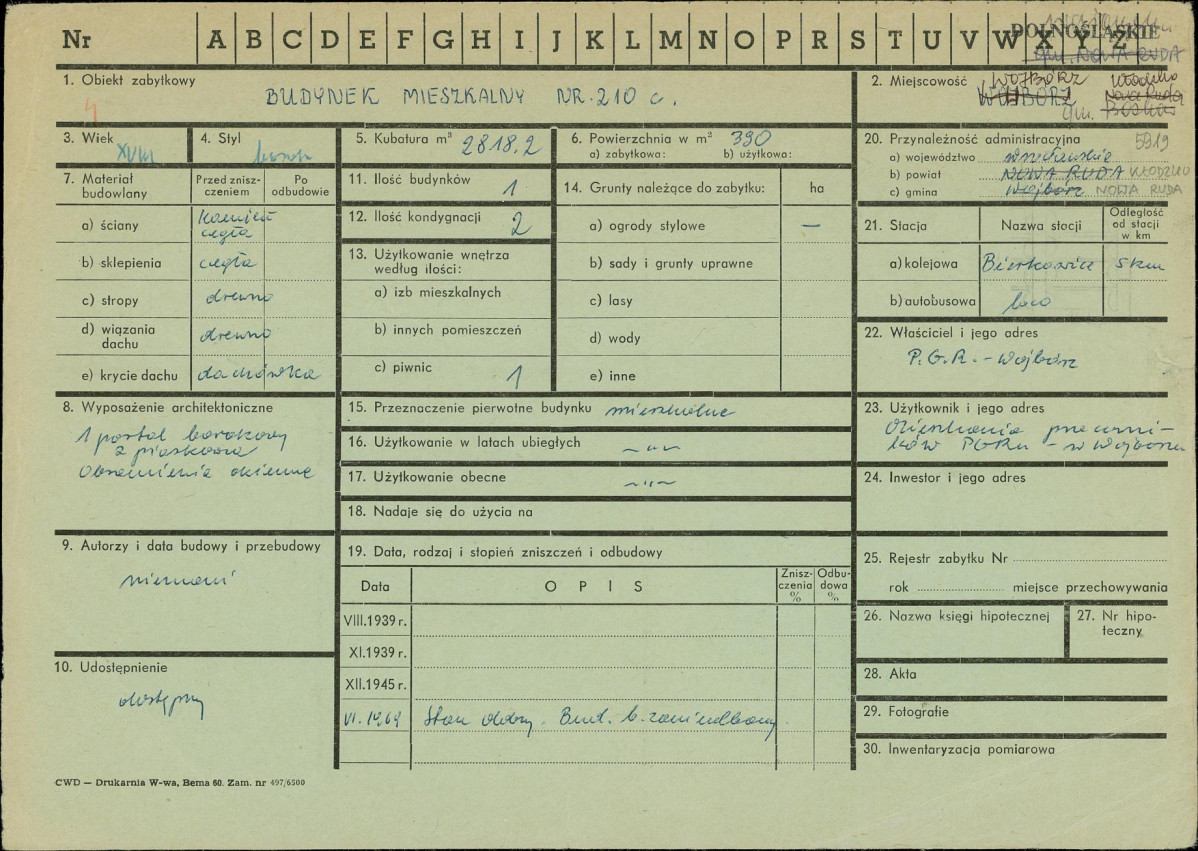 Nr A B C D E F G H I J K L M N O P R S T U V W X Y Z
DOLNOŚLĄSKIE
gm. NOWA RUDA
1. Obiekt zabytkowy
BUDYNEK MIESZKALNY NR. 210 c.
4
2. Miejscowość WOJBÓRZ
WOJBORZ
Nowa Ruda
gm.
3. Wiek XVIII
4. Styl barok
5. Kubatura m³ 2818.2
6. Powierzchnia w m² 390
a) zabytkowa: b) użytkowa:
20. Przynależność administracyjna 5919
a) województwo wrocławskie
b) powiat NOWA RUDA KŁODZKO
c) gmina Wojbórz NOWA RUDA
7. Materiał budowlany
Przed znisz-
czeniem
Po
odbudowie
a) ściany kamień
cegła
b) sklepienia cegła
c) stropy drewno
d) wiązania
dachu drewno
e) krycie dachu dachówka
11. Ilość budynków 1
12. Ilość kondygnacji 2
13. Użytkowanie wnętrza
według ilości:
a) izb mieszkalnych
b) innych pomieszczeń
c) piwnic 1
14. Grunty należące do zabytku: ha
a) ogrody stylowe —
b) sady i grunty uprawne
c) lasy
d) wody
e) inne
21. Stacja Nazwa stocji
Odległość
od stacji
w km
a) kolejowa Bierkowice 5 km
b) autobusowa loco
22. Właściciel i jego adres
P.G.R. - Wojbórz
8. Wyposażenie architektoniczne
1 portal barokowy
z piaskowca
Obramienia okienne
15. Przeznaczenie pierwotne budynku mieszkalne
16. Użytkowanie w latach ubiegłych —„—
17. Użytkowanie obecne —„—
18. Nadaje się do użycia na
23. Użytkownik i jego adres
Mieszkania pracowni-
ków PGRu - w Wojborzu
24. Inwestor i jego adres
9. Autorzy i data budowy i przebudowy
nieznani
10. Udostępnienie
dostępny
19. Data, rodzaj i stopień zniszczeń i odbudowy
Data OPIS
Znisz-
czenia
%
Odbu-
dowa
%
VIII.1939 r.
XI.1939 r.
XII.1945 r.
VI.1969 Stan dobry. Bud. b. zaniedbany.
25. Rejestr zabytku Nr
rok miejsce przechowywania
26. Nazwa księgi hipotecznej
27. Nr hipo-
teczny
28. Akta
29. Fotografie
30. Inwentaryzacja pomiarowa
CWD — Drukarnia W-wa, Bema 60. Zam. nr 497/6500